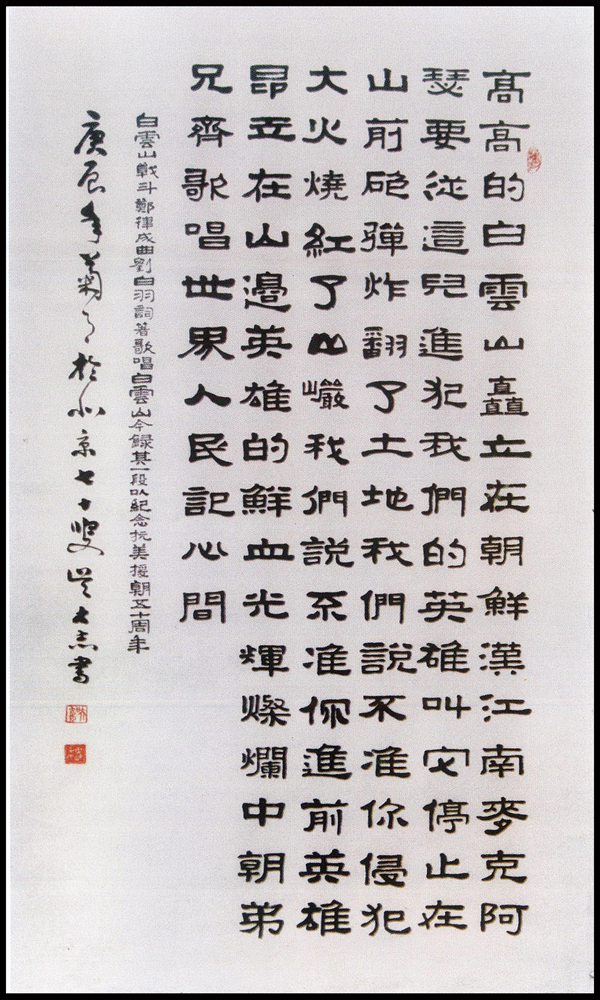 髙髙的白雲山矗立在朝鮮漢江南麥克阿
瑟要從這兒進犯我們的英雄叫它停止在
山前砲彈炸翻了土地我們說不准你侵犯
大火燒紅了山巖我們說不准你進前英雄
昂立在山邊英雄的鮮血光煇燦爛中朝弟
兄齊歌唱世界人民記心間
白雲山戰斗鄭律成曲劉白羽詞著歌唱白雲山今錄其一段以紀念抗美援朝五十周年
庚辰年菊月於北京七十叟吳志書